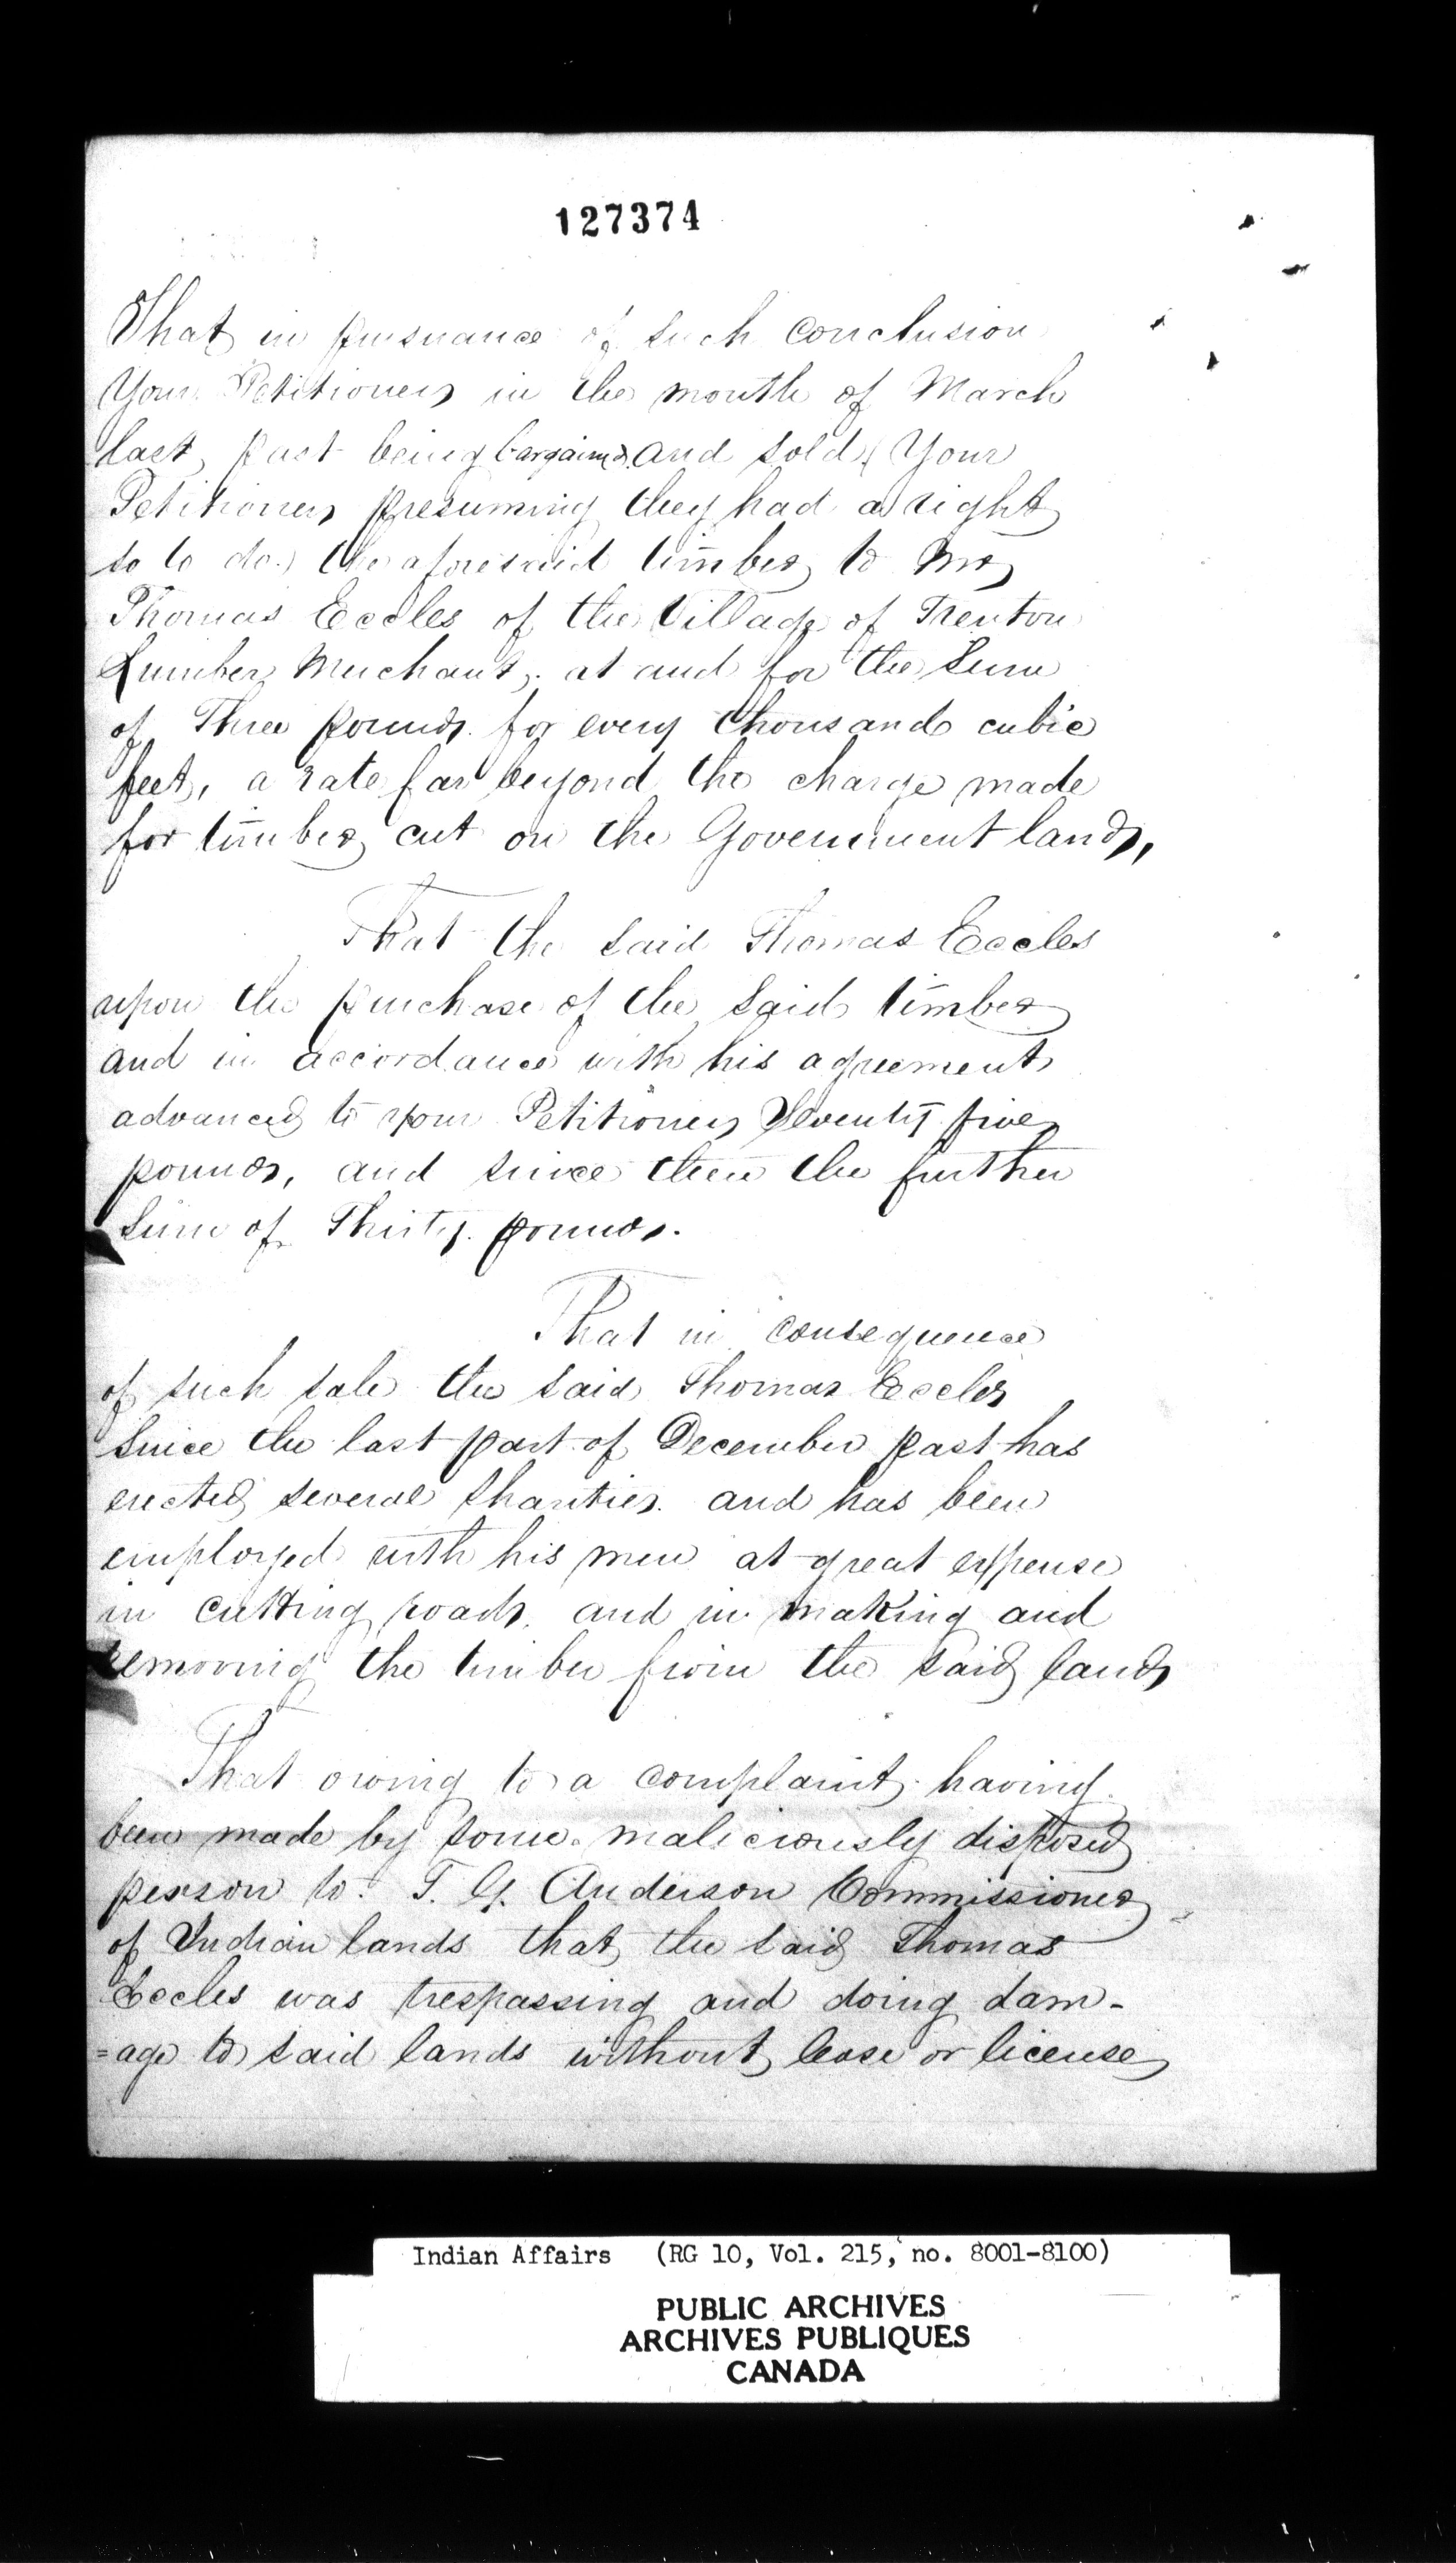 127374
That in pursuance of such conclusion
Your Petitioners in the month of March
last past being bargained and sold (Your
Petitioners presuming they had a right
so to do) the aforesaid timber to Mr
Thomas Eccles of the Village of Trenton
Lumber Merchant, at and for the Sum
of Three pounds for every thousand cubic
feet, a rate far beyond the charge made
for timber cut on the Government lands,
That the said Thomas Eccles
upon the purchase of the said timber
and in accordance with his agreement
advanced to your Petitioners Seventy five
pounds, and since then the further
Sum of Thirty pounds.
That in consequence
of such sale the said Thomas Eccles
Since the last part of December past has
erected several shanties and has been
employed with his men at great expense
in cutting roads, and in making and
removing the timber from the said lands
That owing to a complaint having
been made by some maliciously disposed
person to T. G. Anderson Commissioner
of Indian lands that the said Thomas
Eccles was trespassing and doing dam-
=age to said lands without lease or license
Indian Affairs (RG 10, Vol. 215, no. 8001-8100)
PUBLIC ARCHIVES
ARCHIVES PUBLIQUES
CANADA